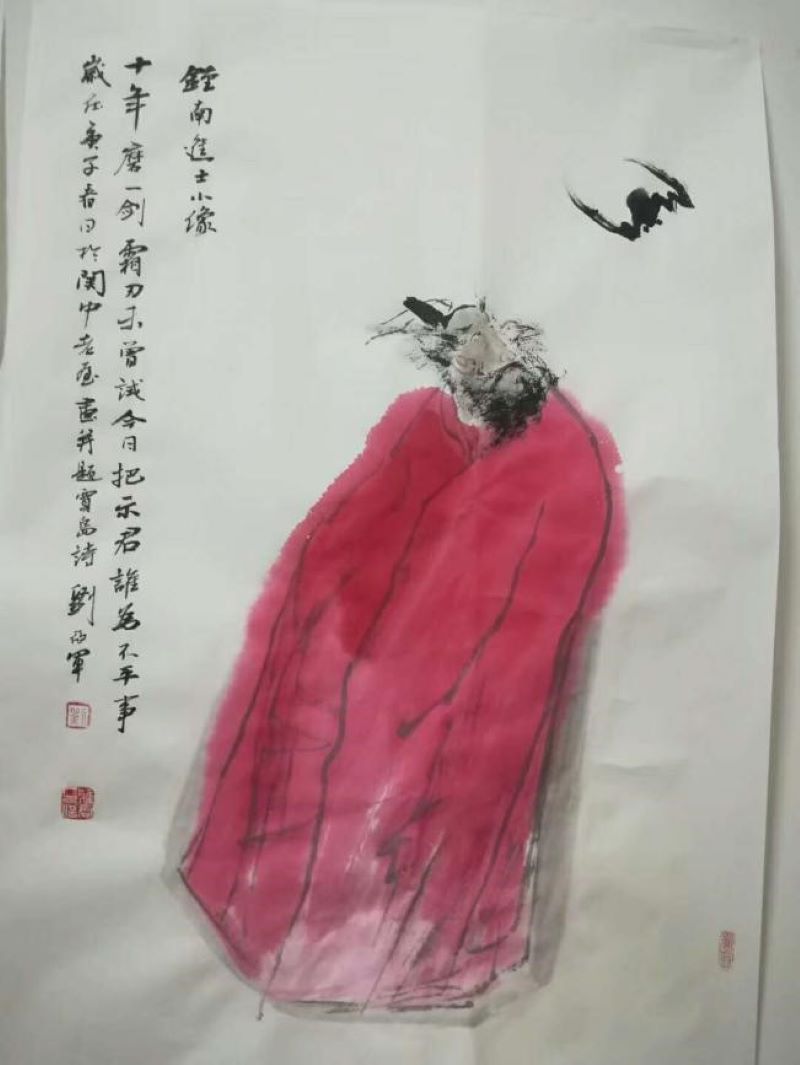 鍾南進士小像
十年磨一劍霜刃未曾試今日把示君誰為不平事
歲在庚子春日於関中老屋畫并題賈島詩劉
軍